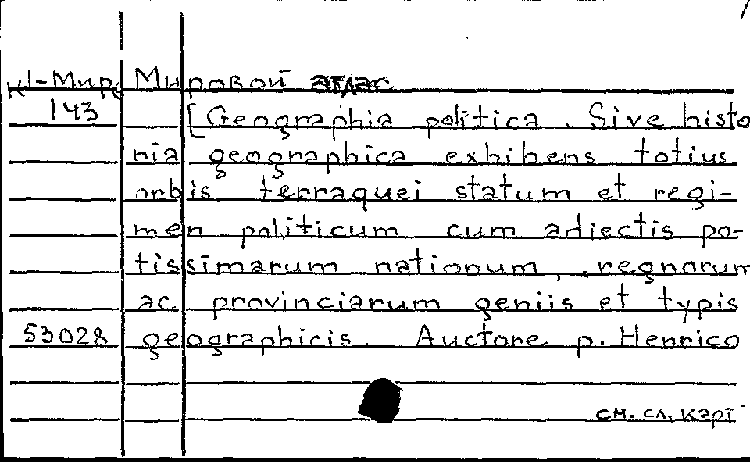 К1-Мир Мировой атлас
143 [Geographia politica. Sive histo
ria geographica exhibens totius
orbis terraquei statum et regi-
men politicum cum adiectis po-
tissimarum nationum, regnorum
ac provinciarum geniis et typis
53028 geographicis. Auctore p. Henrico
см. сл. карт